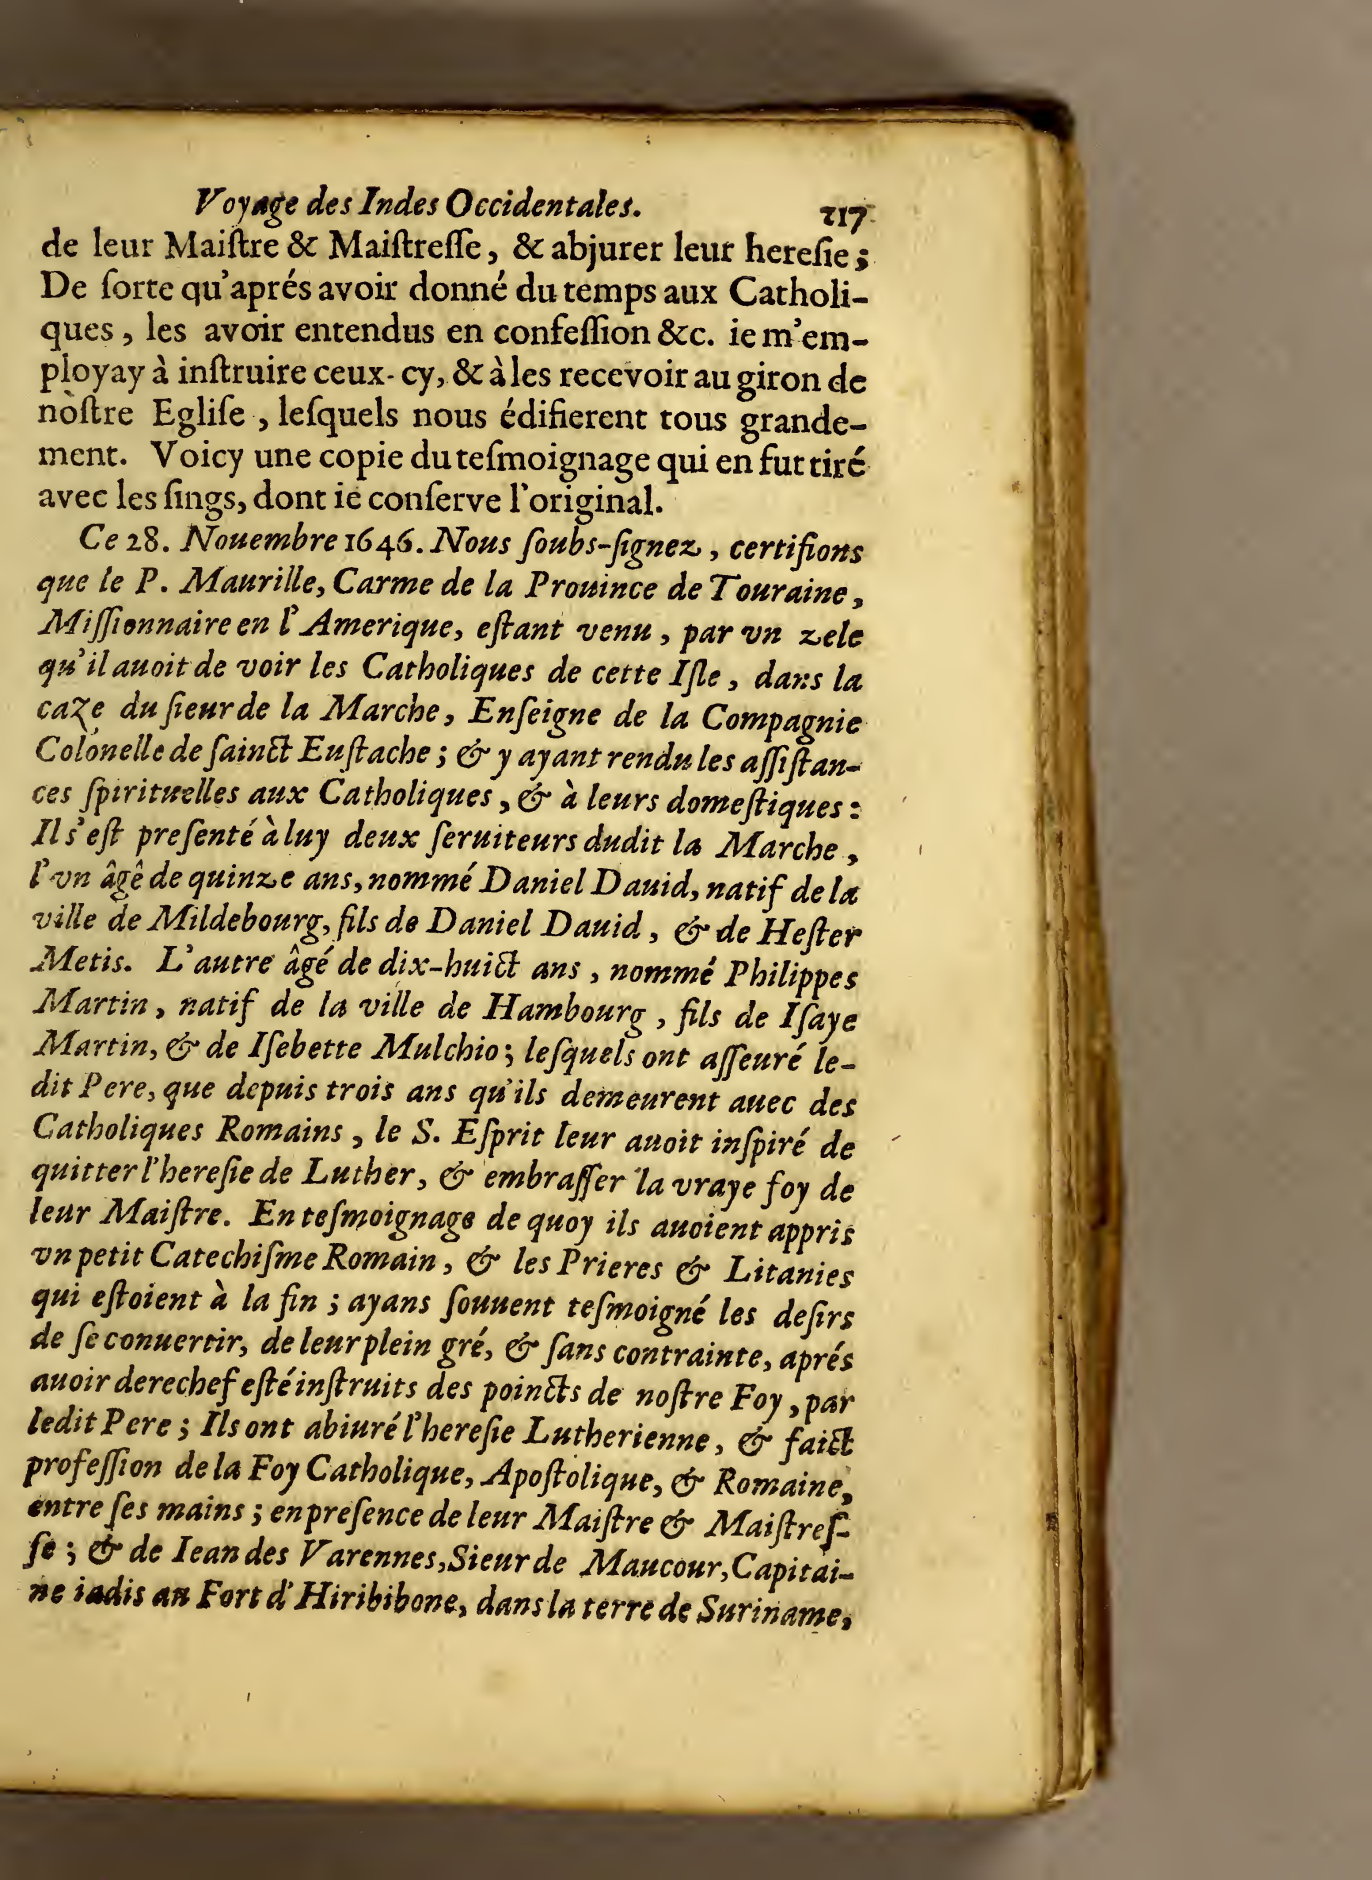 Voyage des Indes Occidentales. 117
de leur Maiſtre & Maiſtreſſe, & abjurer leur hereſie;
De ſorte qu'aprés avoir donné du temps aux Catholi-
ques, les avoir entendus en confeſſion &c. ie m'em-
ployay à inſtruire ceux-cy, & à les recevoir au giron de
nòſtre Egliſe, leſquels nous édifierent tous grande-
ment. Voicy une copie du teſmoignage qui en fut tiré
avec les ſings, dont ie conſerve l'original.
Ce 28. Nouembre 1646. Nous ſoubs-ſignez, certifions
que le P. Maurille, Carme de la Prouince de Touraine,
Miſſionnaire en l'Amerique, eſtant venu, par vn zele
qu'il auoit de voir les Catholiques de cette Iſle, dans la
caze du ſieur de la Marche, Enſeigne de la Compagnie
Colonelle de ſainct Euſtache; & y ayant rendu les aſſiſtan-
ces ſpirituelles aux Catholiques, & à leurs domeſtiques:
Il s'eſt preſenté à luy deux ſeruiteurs dudit la Marche,
l'vn âgê de quinze ans, nommé Daniel Dauid, natif de la
ville de Mildebourg, fils de Daniel Dauid, & de Heſter
Metis. L'autre âgé de dix-huict ans, nommé Philippes
Martin, natif de la ville de Hambourg, fils de Iſaye
Martin, & de Iſebette Mulchio; leſquels ont aſſeuré le-
dit Pere, que depuis trois ans qu'ils demeurent auec des
Catholiques Romains, le S. Eſprit leur auoit inſpiré de
quitter l'hereſie de Luther, & embraſſer la vraye foy de
leur Maiſtre. En teſmoignage de quoy ils auoient appris
vn petit Catechiſme Romain, & les Prieres & Litanies
qui eſtoient à la fin; ayans ſouuent teſmoigné les deſirs
de ſe conuertir, de leur plein gré, & ſans contrainte, aprés
auoir derechef eſté inſtruits des poincts de noſtre Foy, par
ledit Pere; Ils ont abiuré l'hereſie Lutherienne, & faict
profeſſion de la Foy Catholique, Apoſtolique, & Romaine,
entre ſes mains; en preſence de leur Maiſtre & Maiſtreſ-
ſe; & de Iean des Varennes, Sieur de Maucour, Capitai-
ne iadis au Fort d'Hiribibone, dans la terre de Suriname,